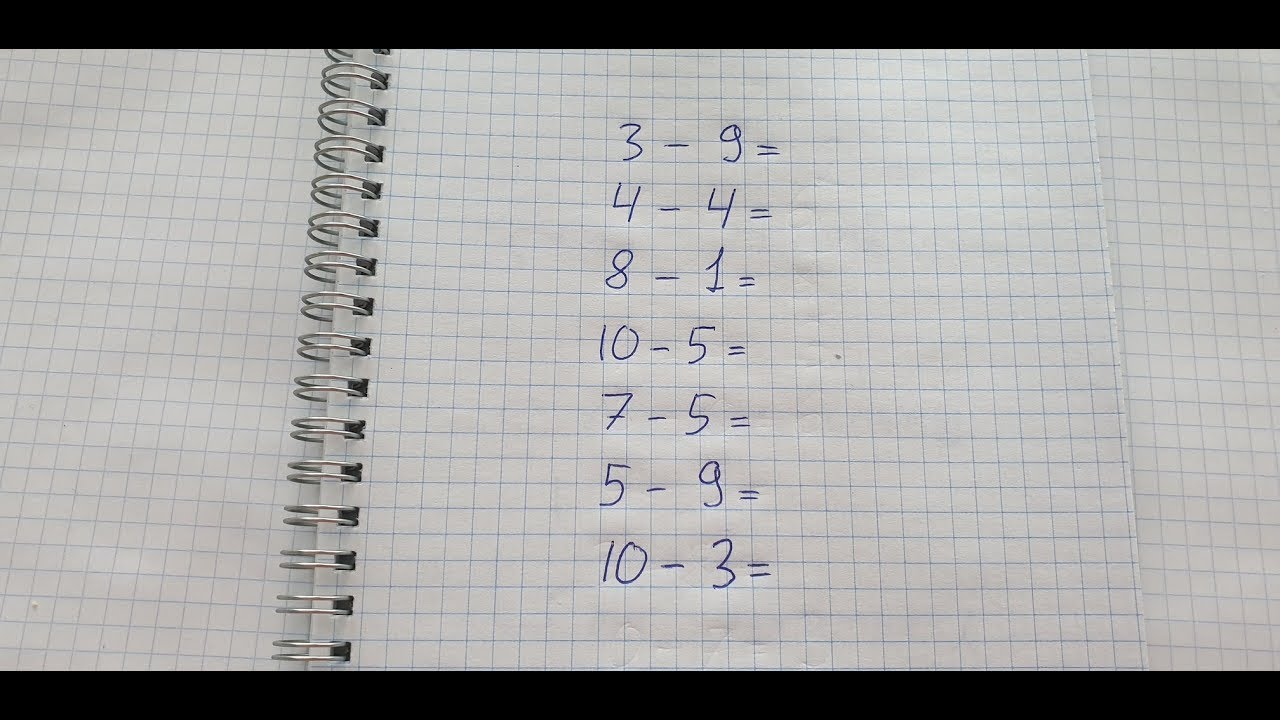 3 - 9 =
4 - 4 =
8 - 1 =
10 - 5 =
7 - 5 =
5 - 9 =
10 - 3 =